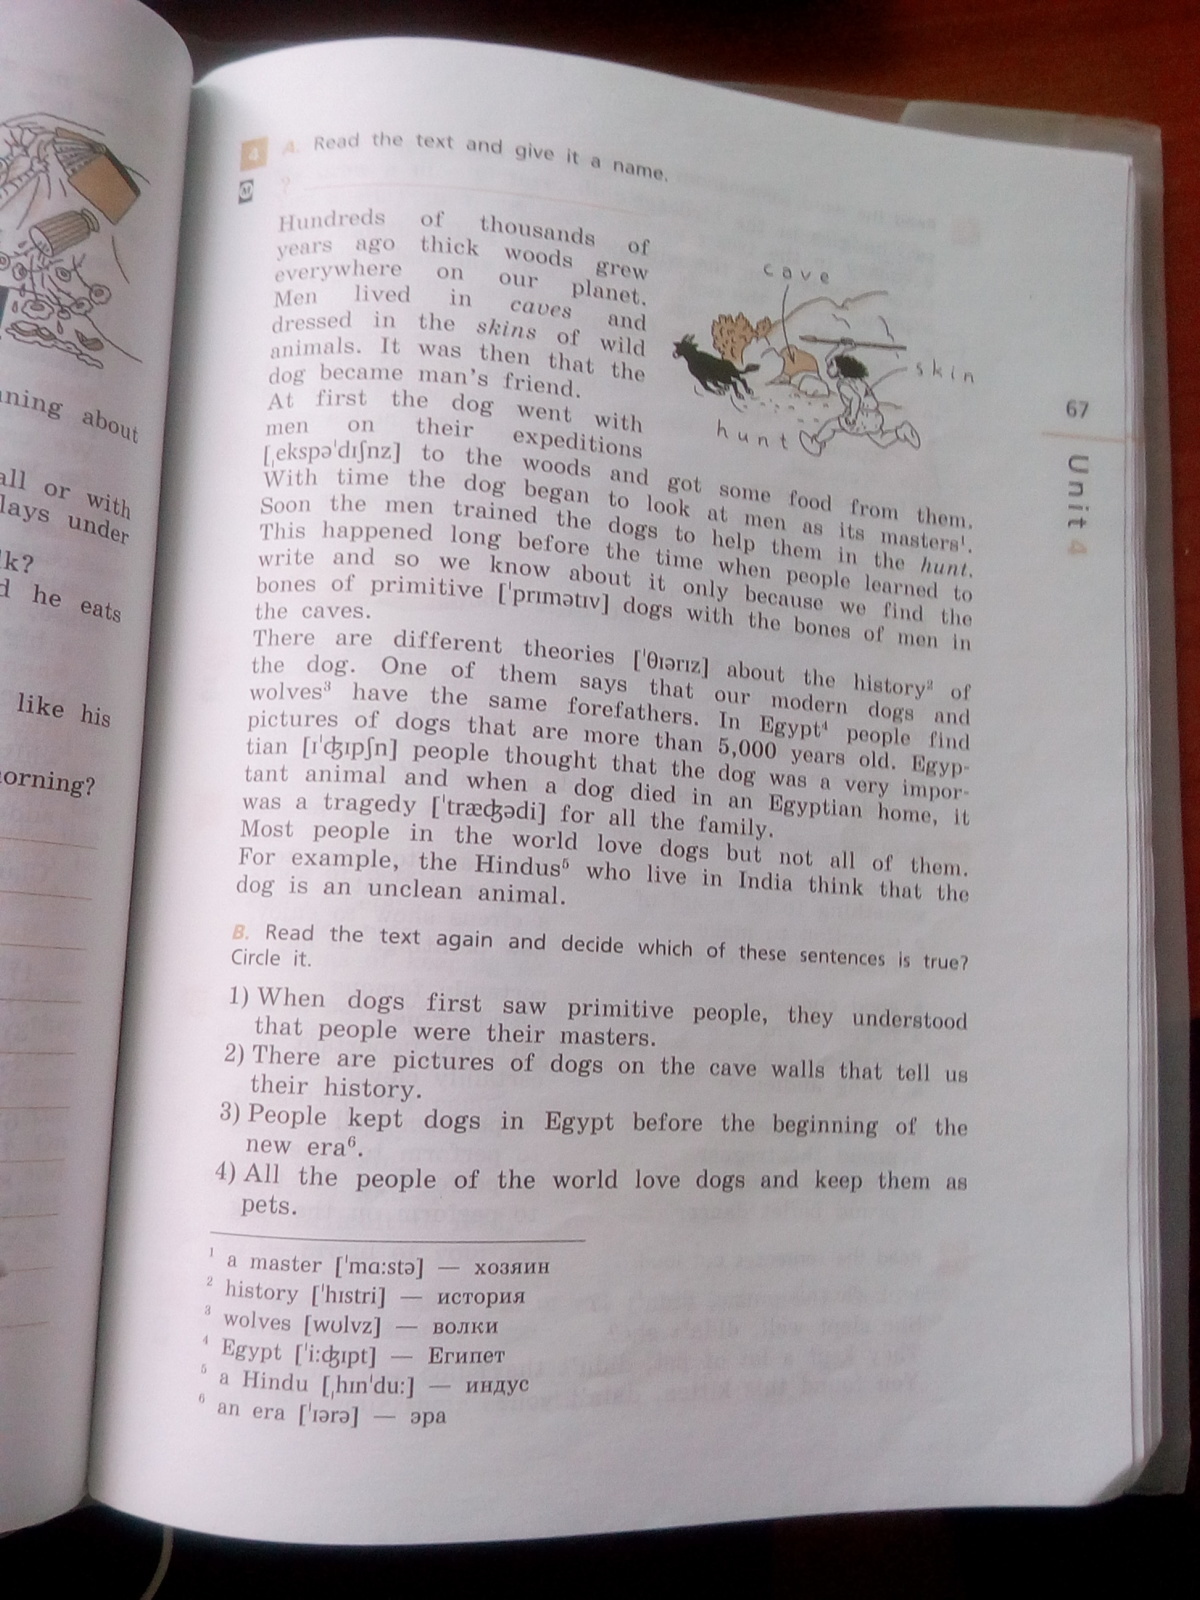 nning about
all or with
lays under
k?
d he eats
like his
orning?
4 A. Read the text and give it a name.
?
Hundreds of thousands of
years ago thick woods grew
everywhere on our planet.
Men lived in caves and
dressed in the skins of wild
animals. It was then that the
dog became man's friend.
At first the dog went with
men on their expeditions
[ˌekspəˈdɪʃnz] to the woods and got some food from them.
With time the dog began to look at men as its masters¹.
Soon the men trained the dogs to help them in the hunt.
This happened long before the time when people learned to
write and so we know about it only because we find the
bones of primitive [ˈprɪmətɪv] dogs with the bones of men in
the caves.
There are different theories [ˈθɪərɪz] about the history² of
the dog. One of them says that our modern dogs and
wolves³ have the same forefathers. In Egypt⁴ people find
pictures of dogs that are more than 5,000 years old. Egyp-
tian [ɪˈʤɪpʃn] people thought that the dog was a very impor-
tant animal and when a dog died in an Egyptian home, it
was a tragedy [ˈtræʤədi] for all the family.
Most people in the world love dogs but not all of them.
For example, the Hindus⁵ who live in India think that the
dog is an unclean animal.
cave
skin
hunt
67
Unit 4
B. Read the text again and decide which of these sentences is true?
Circle it.
1) When dogs first saw primitive people, they understood
that people were their masters.
2) There are pictures of dogs on the cave walls that tell us
their history.
3) People kept dogs in Egypt before the beginning of the
new era⁶.
4) All the people of the world love dogs and keep them as
pets.
¹ a master [ˈmɑ:stə] — хозяин
² history [ˈhɪstri] — история
³ wolves [wʊlvz] — волки
⁴ Egypt [ˈi:ʤɪpt] — Египет
⁵ a Hindu [ˌhɪnˈdu:] — индус
⁶ an era [ˈɪərə] — эра